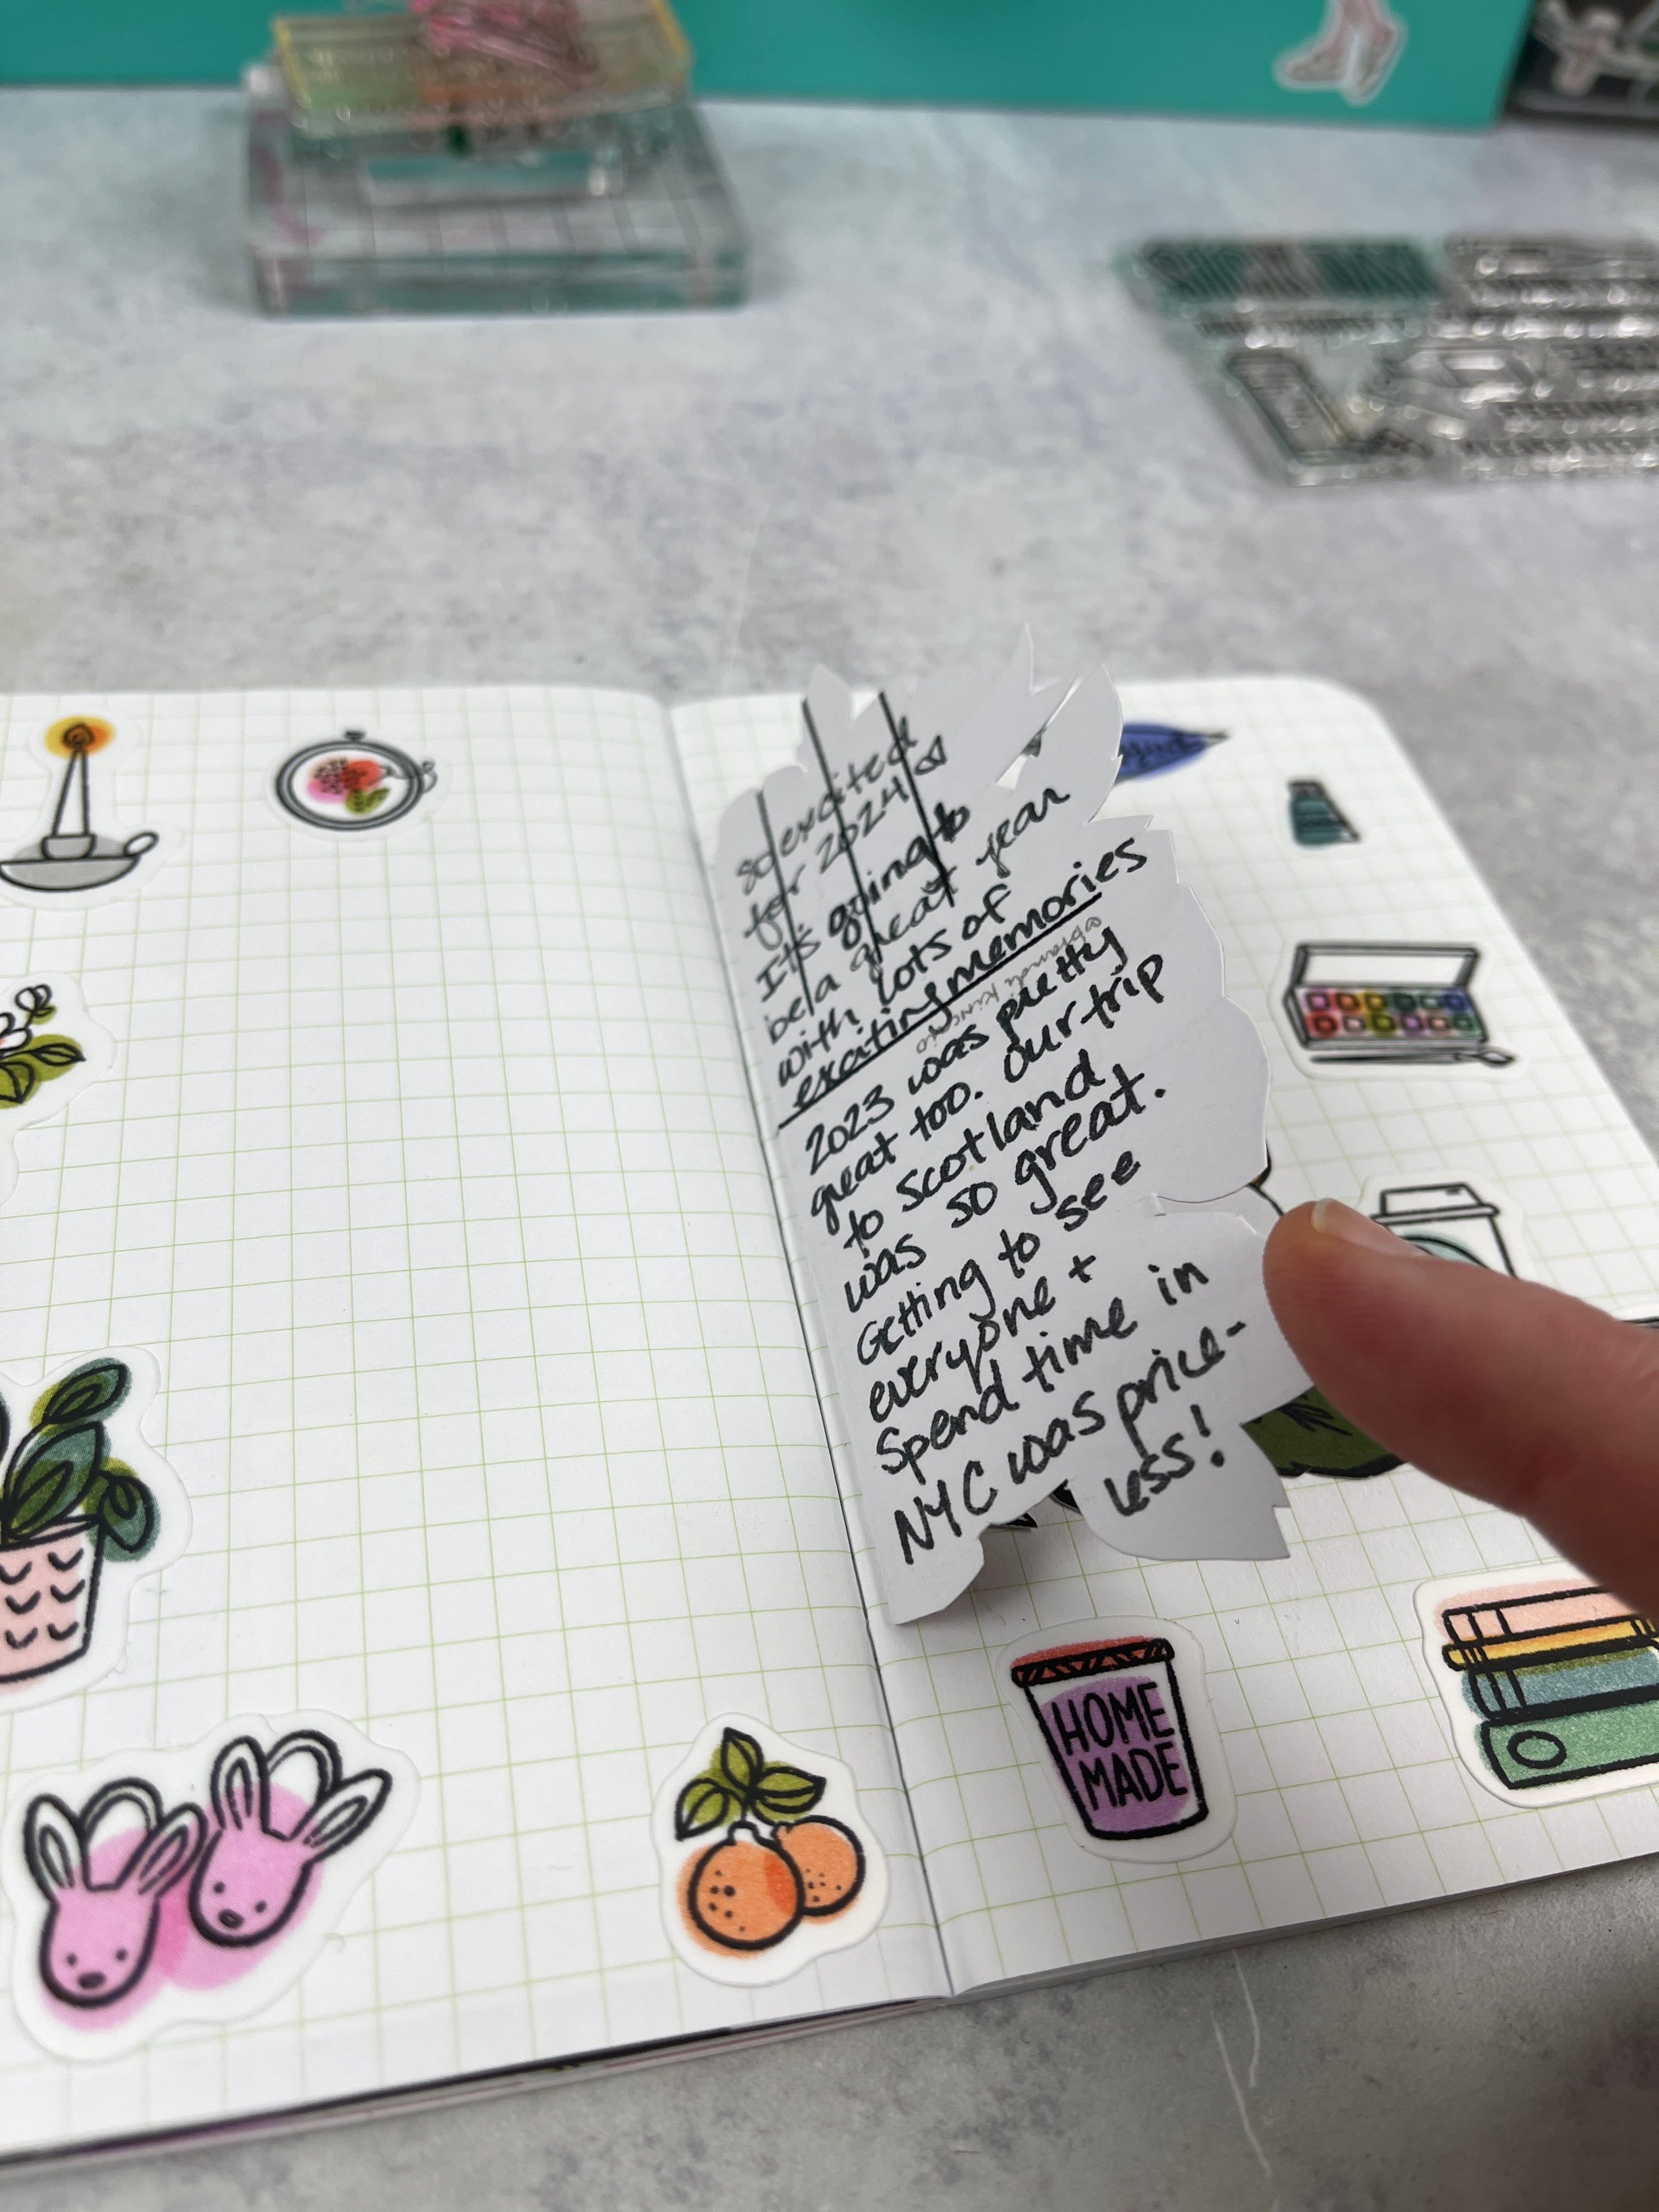 so excited
for 2024
It's going to
be a great year
with lots of
exciting memories
2023 was pretty
great too. Our trip
to Scotland
was so great.
Getting to see
everyone +
Spend time in
NYC was price-
less!
HOME
MADE